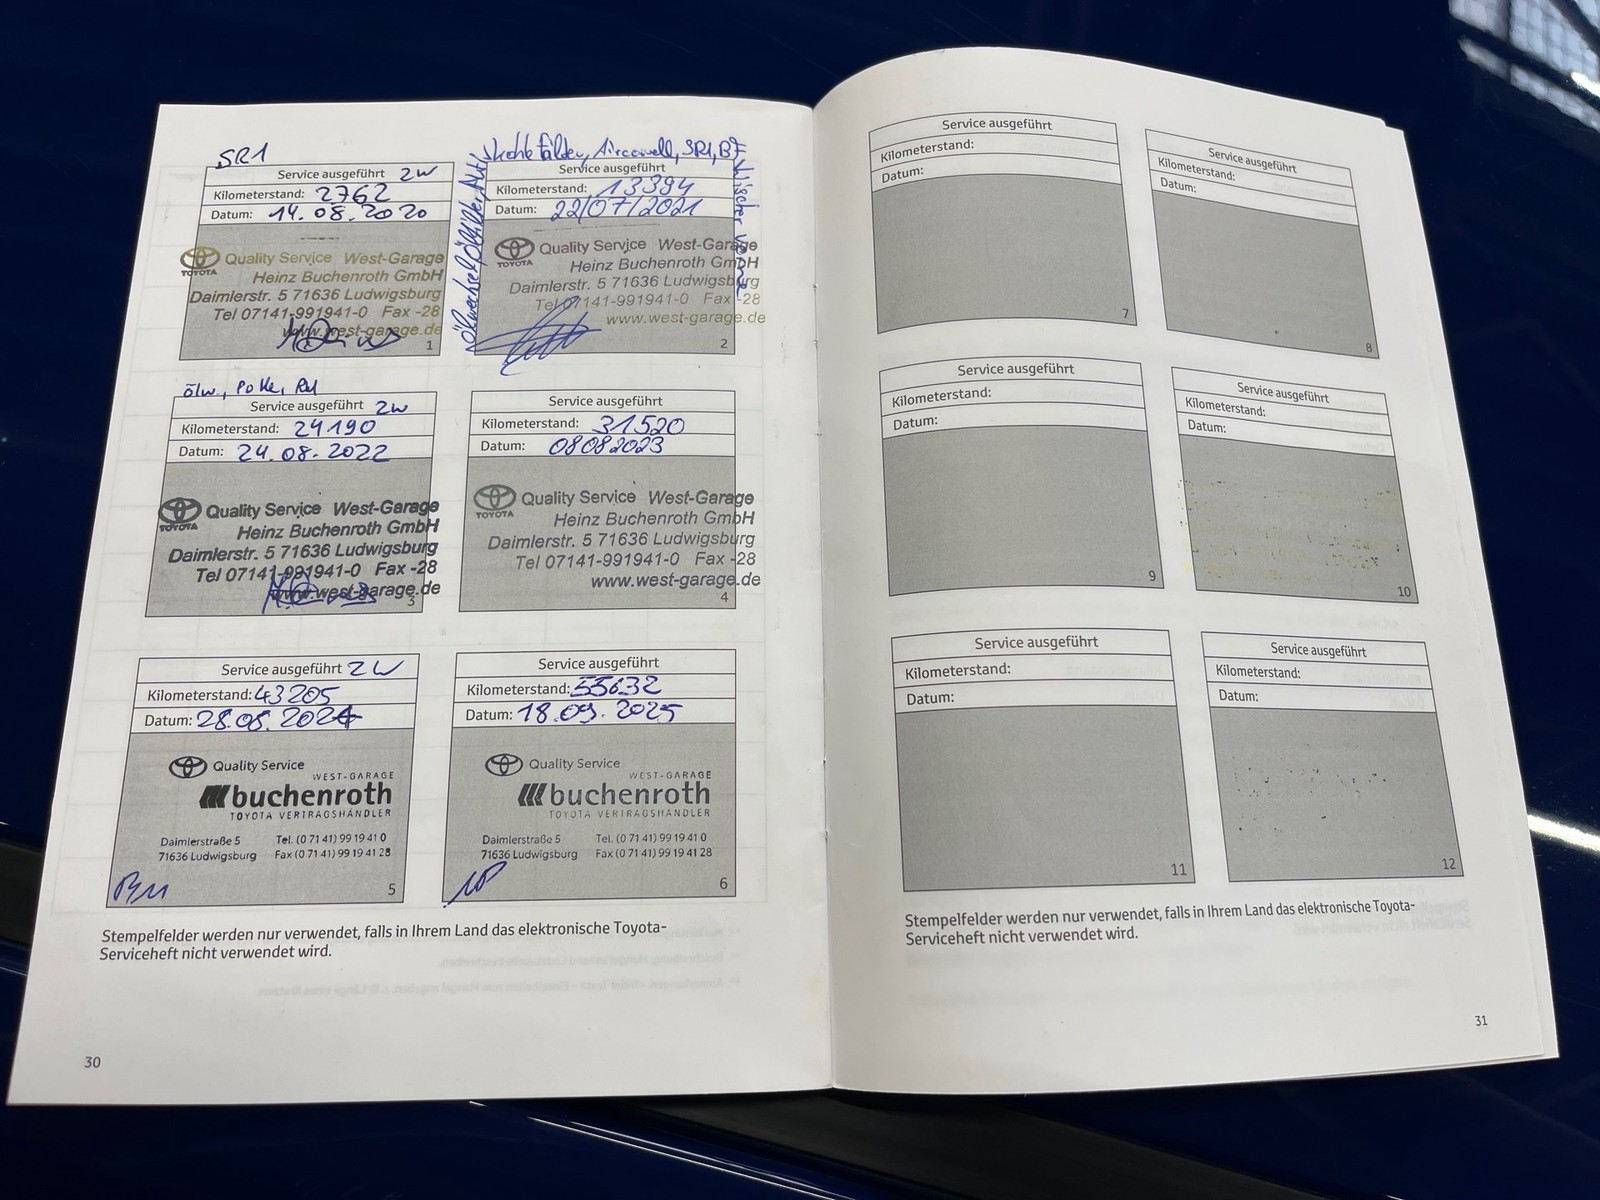 SR1
Service ausgeführt 2W
Kilometerstand: 2762
Datum: 14.08.2020
TOYOTA
Quality Service West-Garage
Heinz Buchenroth GmbH
Daimlerstr. 5 71636 Ludwigsburg
Tel 07141-991941-0 Fax -28
www.west-garage.de
1
SR1, BF
Service ausgeführt
Kilometerstand: 13394
Datum: 22/07/2021
Wischer vorne
TOYOTA
Quality Service West-Garage
Heinz Buchenroth GmbH
Daimlerstr. 5 71636 Ludwigsburg
Tel 07141-991941-0 Fax -28
www.west-garage.de
2
ölw., Polle, RM
Service ausgeführt 2W
Kilometerstand: 24190
Datum: 24.08.2022
TOYOTA
Quality Service West-Garage
Heinz Buchenroth GmbH
Daimlerstr. 5 71636 Ludwigsburg
Tel 07141-991941-0 Fax -28
www.west-garage.de
3
Service ausgeführt
Kilometerstand: 31520
Datum: 08082023
TOYOTA
Quality Service West-Garage
Heinz Buchenroth GmbH
Daimlerstr. 5 71636 Ludwigsburg
Tel 07141-991941-0 Fax -28
www.west-garage.de
4
Service ausgeführt 2W
Kilometerstand: 43205
Datum: 28.08.2024
Quality Service
WEST-GARAGE
buchenroth
TOYOTA VERTRAGSHÄNDLER
Daimlerstraße 5 Tel. (0 71 41) 99 19 41 0
71636 Ludwigsburg Fax (0 71 41) 99 19 41 28
5
Service ausgeführt
Kilometerstand: 55632
Datum: 18.09.2025
Quality Service
WEST-GARAGE
buchenroth
TOYOTA VERTRAGSHÄNDLER
Daimlerstraße 5 Tel. (0 71 41) 99 19 41 0
71636 Ludwigsburg Fax (0 71 41) 99 19 41 28
6
Stempelfelder werden nur verwendet, falls in Ihrem Land das elektronische Toyota-
Serviceheft nicht verwendet wird.
30
Service ausgeführt
Kilometerstand:
Datum:
7
Service ausgeführt
Kilometerstand:
Datum:
8
Service ausgeführt
Kilometerstand:
Datum:
9
Service ausgeführt
Kilometerstand:
Datum:
10
Service ausgeführt
Kilometerstand:
Datum:
11
Service ausgeführt
Kilometerstand:
Datum:
12
Stempelfelder werden nur verwendet, falls in Ihrem Land das elektronische Toyota-
Serviceheft nicht verwendet wird.
31